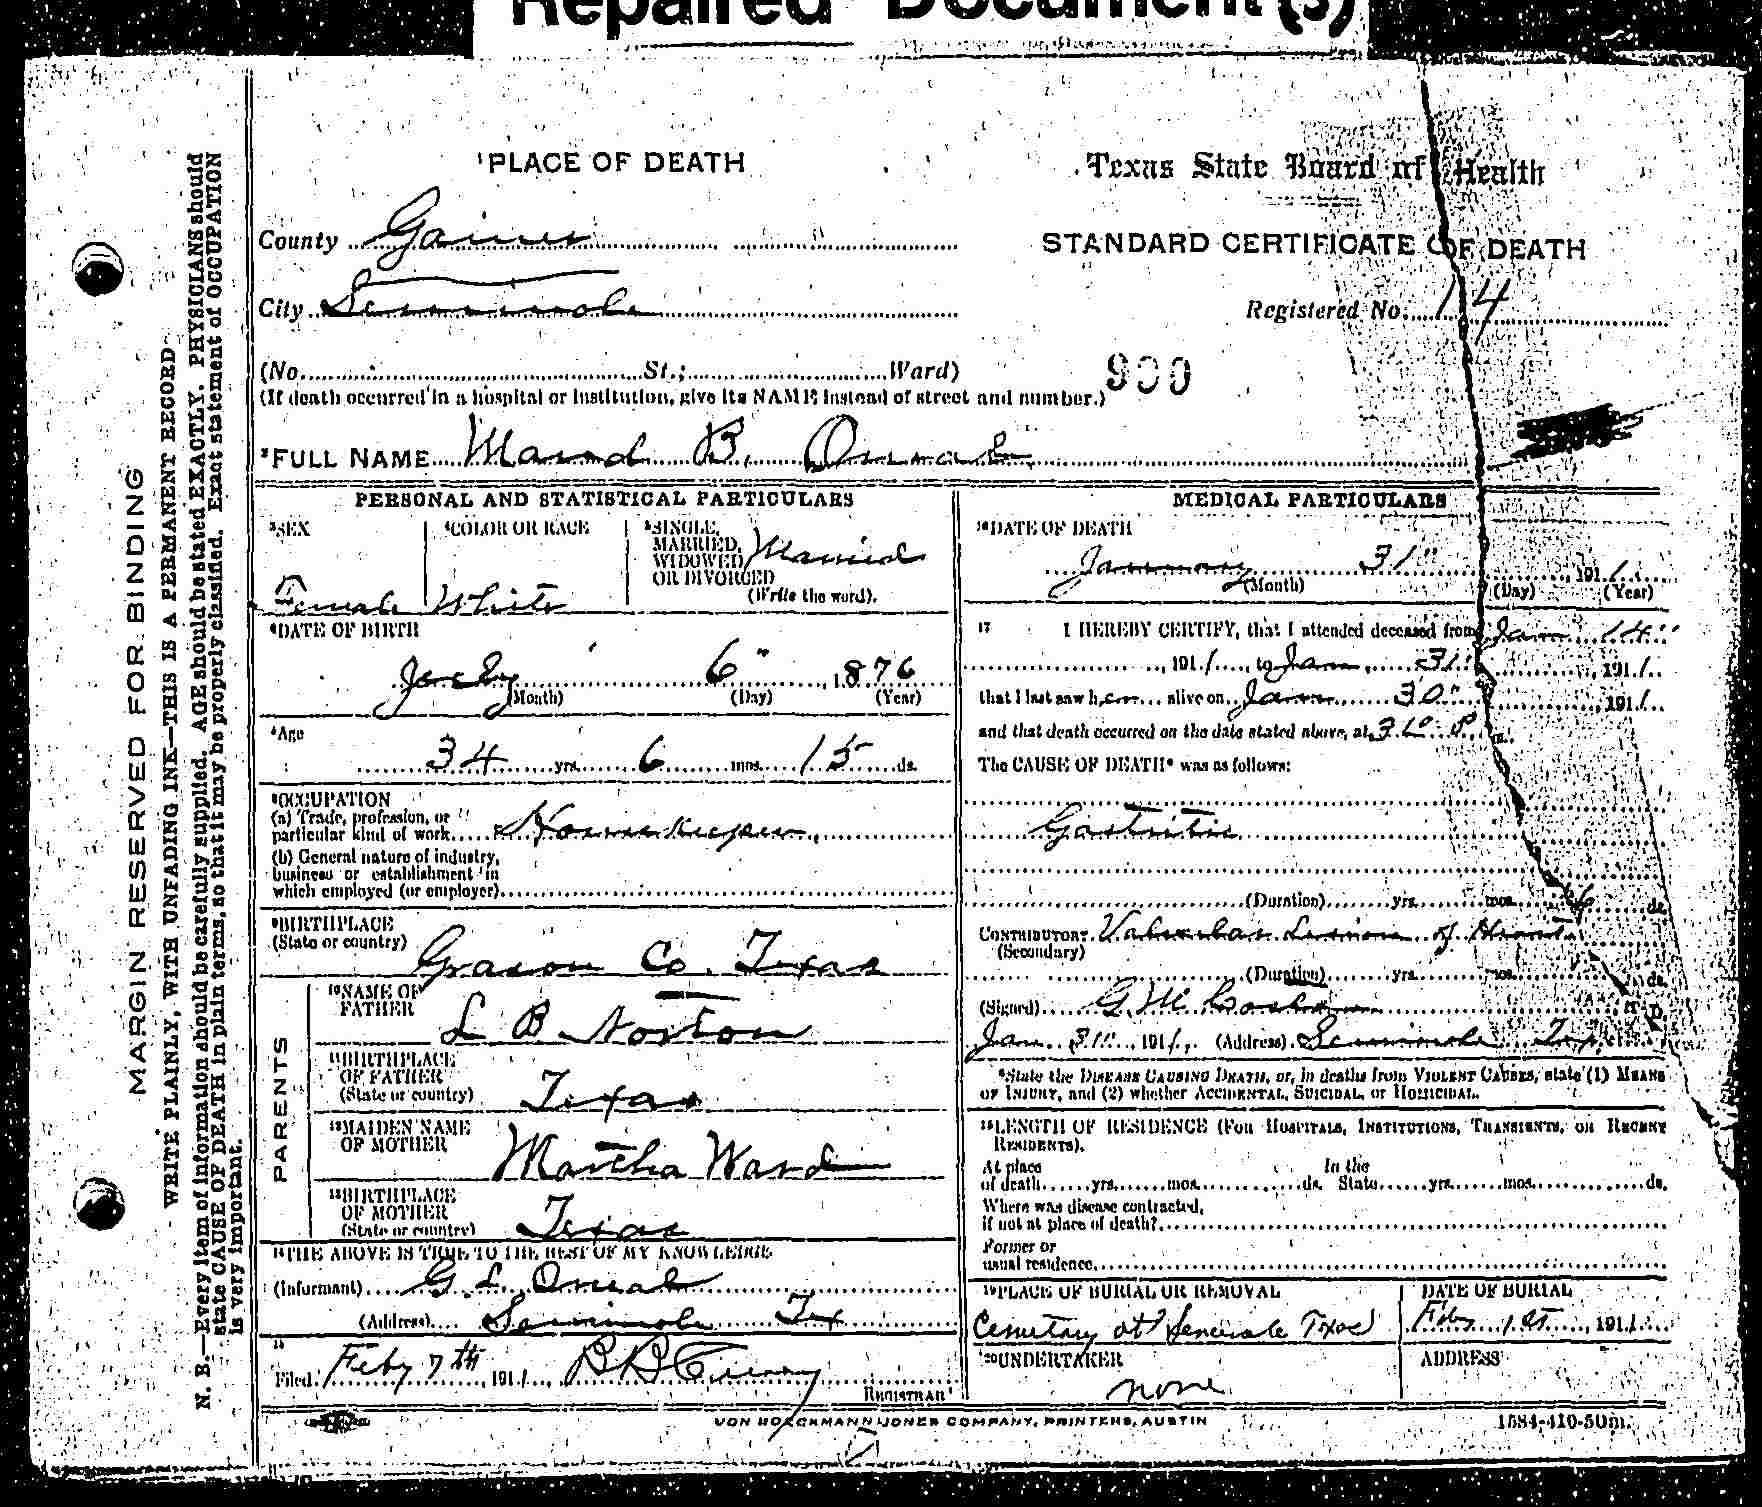 Repaired Document(s)
¹PLACE OF DEATH
Texas State Board of Health
County Gaines
STANDARD CERTIFICATE OF DEATH
City Seminole
Registered No. 14
(No. St.; Ward)
900
(If death occurred in a hospital or institution, give its NAME instead of street and number.)
²FULL NAME Maud B. Oneal
PERSONAL AND STATISTICAL PARTICULARS
³SEX
Female
⁴COLOR OR RACE
White
⁵SINGLE, MARRIED, WIDOWED OR DIVORCED
Married
(Write the word).
⁶DATE OF BIRTH
July 6" 1876
(Month) (Day) (Year)
Age
34 yrs. 6 mos. 15 ds.
⁸OCCUPATION
(a) Trade, profession, or
particular kind of work Housekeeper
(b) General nature of industry,
business or establishment in
which employed (or employer)
⁹BIRTHPLACE
(State or country) Grason Co. Texas
PARENTS
¹⁰NAME OF
FATHER L B Norton
¹¹BIRTHPLACE
OF FATHER
(State or country) Texas
¹²MAIDEN NAME
OF MOTHER Martha Ward
¹³BIRTHPLACE
OF MOTHER
(State or country) Texas
¹⁴THE ABOVE IS TRUE TO THE BEST OF MY KNOWLEDGE
(Informant) G. L. Oneal
(Address) Seminole Tex
15
Filed Feby 7th, 1911, B B
REGISTRAR
MEDICAL PARTICULARS
¹⁶DATE OF DEATH
January 31" 1911
(Month) (Day) (Year)
17 I HEREBY CERTIFY, that I attended deceased from Jan 14"
, 1911, to Jan 31", 1911.
that I last saw her alive on Jan 30" 1911.
and that death occurred on the date stated above, at 310 P. m.
The CAUSE OF DEATH* was as follows:
Gastritis
(Duration) yrs. mos. ds.
CONTRIBUTORY Valvular Lesion of Heart
(Secondary)
(Duration) yrs. mos. ds.
(Signed) G. M. M. D.
Jan. 31", 1911. (Address) Seminole Tex
*State the DISEASE CAUSING DEATH, or, in deaths from VIOLENT CAUSES, state (1) MEANS
OF INJURY, and (2) whether ACCIDENTAL, SUICIDAL, or HOMICIDAL.
¹⁸LENGTH OF RESIDENCE (FOR HOSPITALS, INSTITUTIONS, TRANSIENTS, OR RECENT
RESIDENTS).
At place In the
of death yrs. mos. ds. State yrs. mos. ds.
Where was disease contracted,
if not at place of death?
Former or
usual residence
¹⁹PLACE OF BURIAL OR REMOVAL
Cemetary at Seminole Texas
DATE OF BURIAL
Feby 1st, 1911
²⁰UNDERTAKER
none
ADDRESS
VON BOECKMANN-JONES COMPANY, PRINTERS, AUSTIN
1584-410-50m.
MARGIN RESERVED FOR BINDING
WRITE PLAINLY, WITH UNFADING INK—THIS IS A PERMANENT RECORD
N. B.—Every item of information should be carefully supplied. AGE should be stated EXACTLY. PHYSICIANS should
state CAUSE OF DEATH in plain terms, so that it may be properly classified. Exact statement of OCCUPATION
is very important.